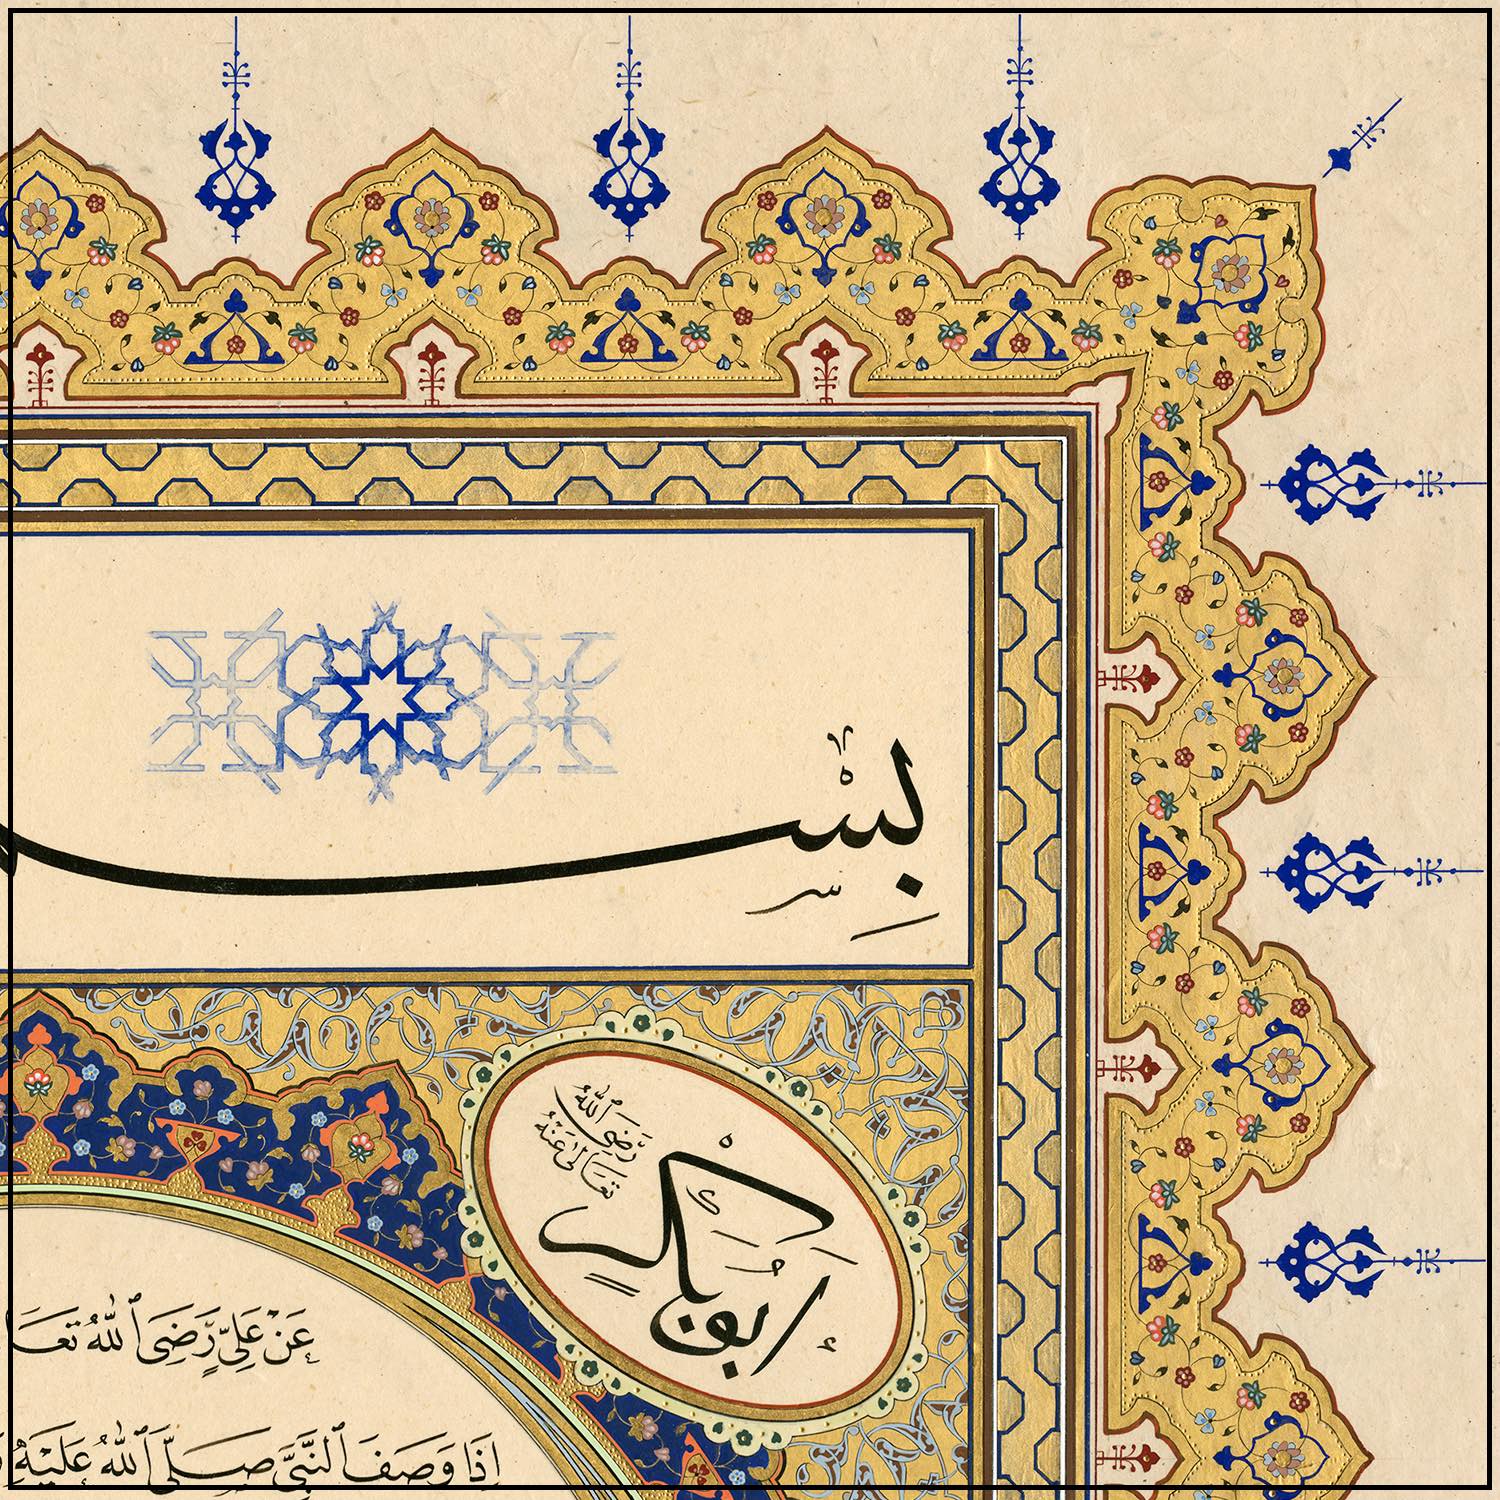 بِسْـ
أَبُوبَكْرٍ
رَضِيَ ٱللّٰهُ
تَعَالٰى عَنْهُ
عَنْ عَلِيٍّ رَّضِيَ ٱللّٰهُ تَعَا
إِذَا وَصَفَ ٱلنَّبِيَّ صَلَّى ٱللّٰهُ عَلَيْهِ